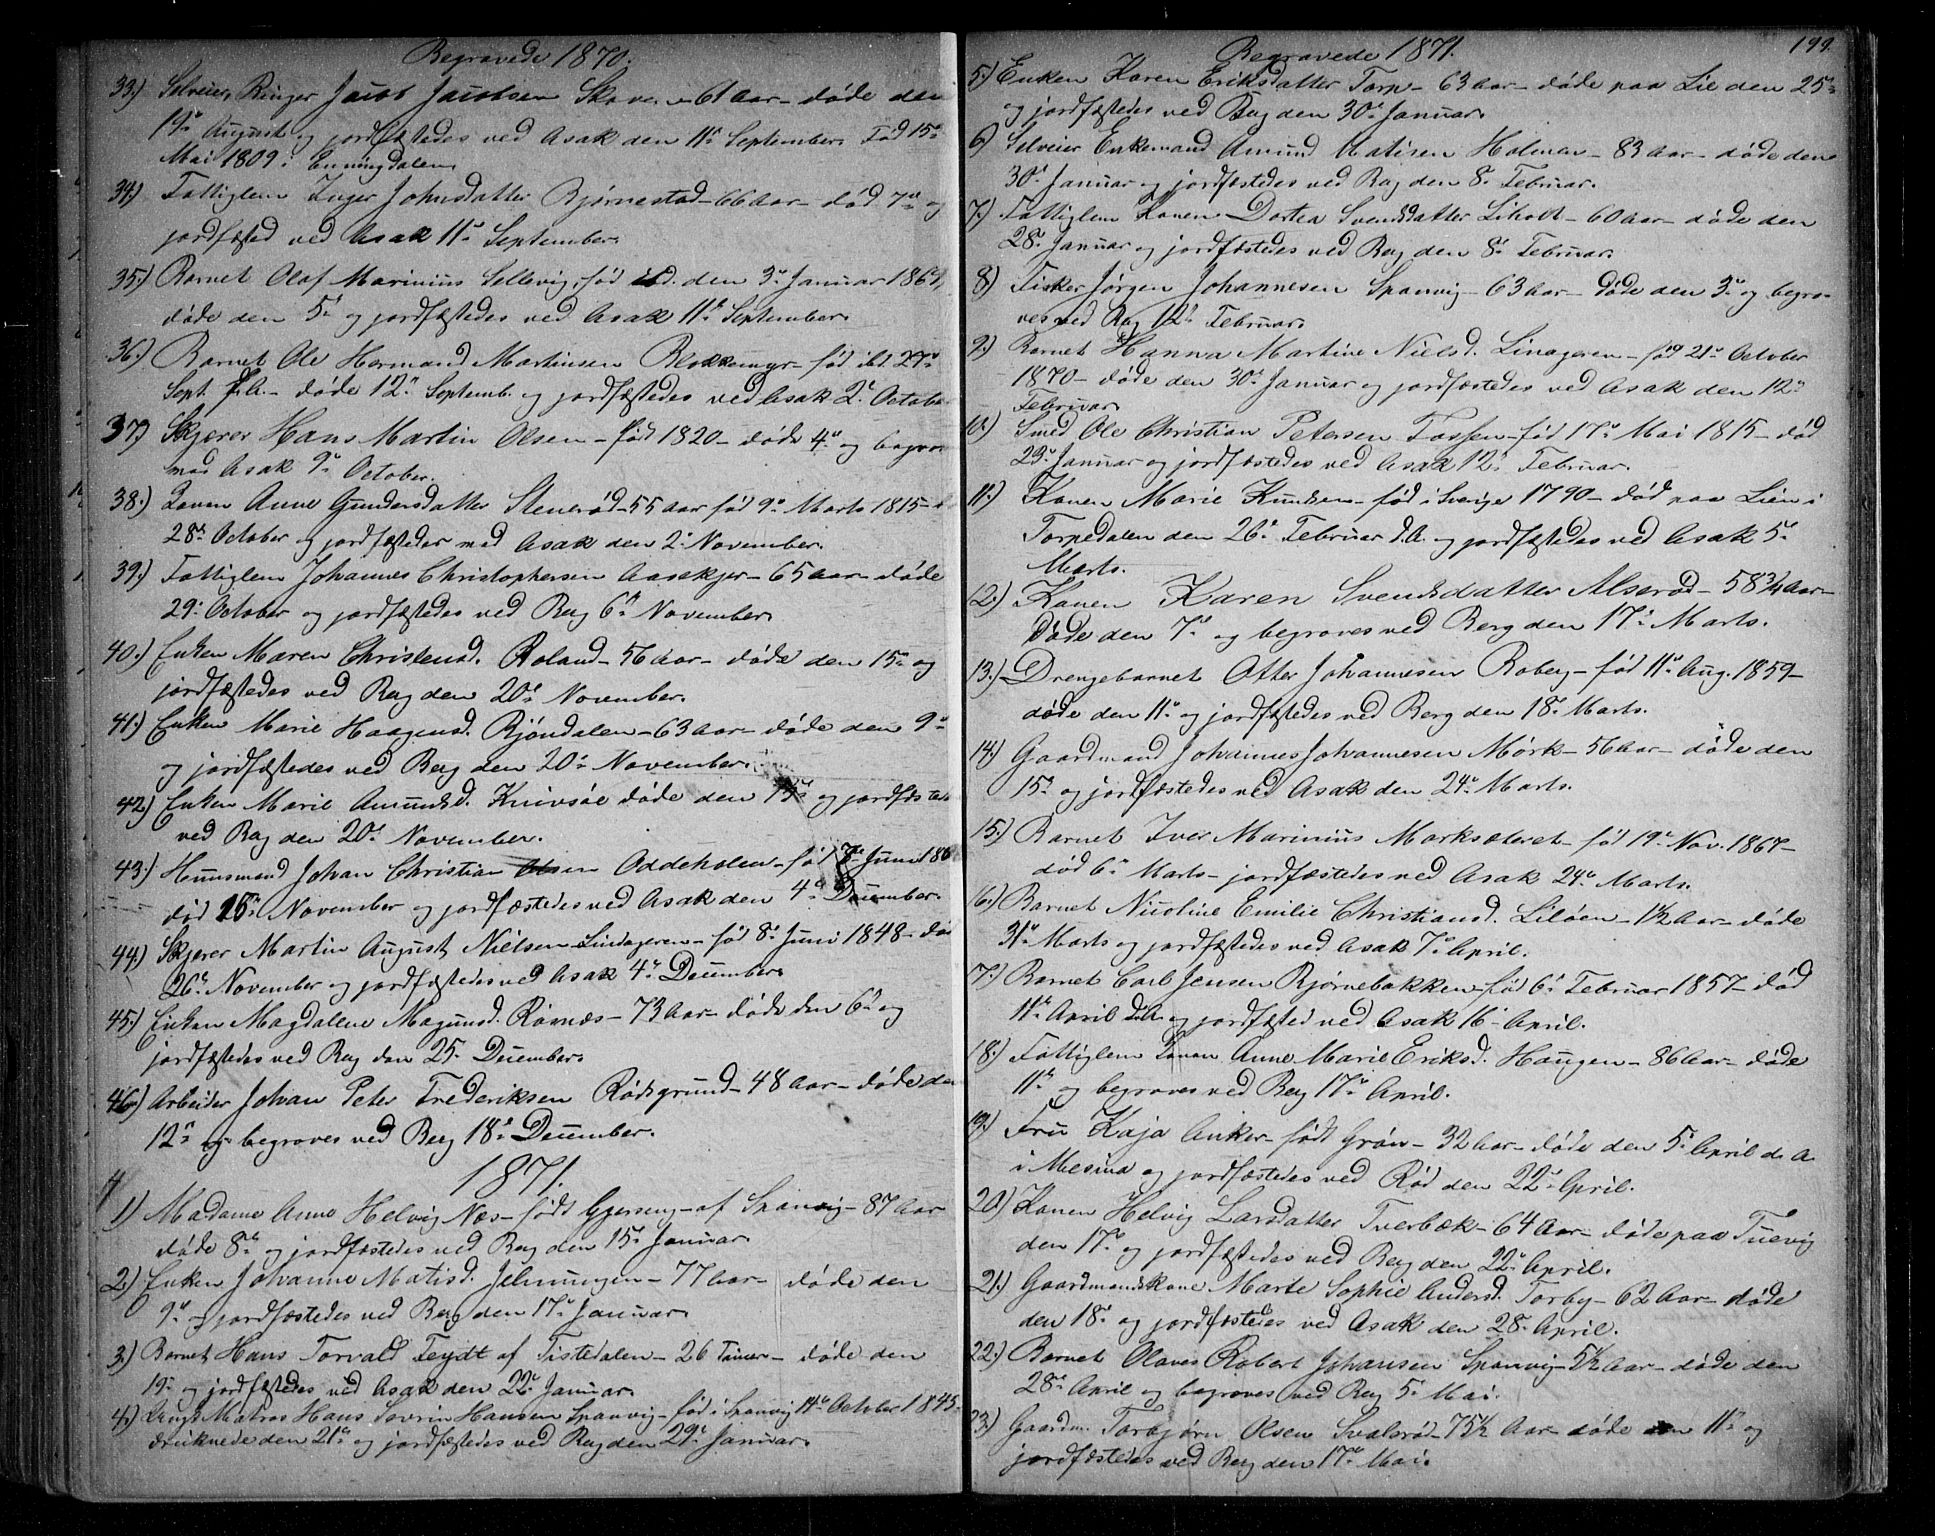 Begravede 1870.
33.) Selveier, Ringer Jacob Jacobsen Skoven - 61 Aar - døde den
19de August og jordfæstedes ved Asak den 11te September. Fød 15de
Mai 1809 i Enningdalen.
34.) Fattiglem Inger Johnsdatter Bjørnestad - 66 Aar - død 7de og
jordfæsted ved Asak 11te September.
35.) Barnet Olaf Marinius Sellevig, fød ibd. den 3de Januar 1867,
døde den 5te og jordfæstedes ved Asak 11te September.
36.) Barnet Ole Hermand Martinsen Blokkemyr - fød ibd. 27de
Sept. f. A. - døde 12te Septemb. og jordfæstedes ved Asak 2den Octobe
37.) Skjærer Hans Martin Olsen - født 1820 - døde 4de og begro-
med Asak 9de October.
38.) Konen Anne Gundersdatter Stenerød - 55 Aar fød 9de Marts 1815 -
28de October og jordfæstedes med Asak den 2den November.
39.) Fattiglem Johannes Christophersen Aasekjær - 65 Aar - døde
29de October og jordfæstedes ved Berg 6te November.
40.) Enken Maren Christensd. Roland - 56 Aar - døde den 15de og
jordfæstedes ved Berg den 20de November.
41.) Enken Marie Haagensd. Bjöndalen - 63 Aar - døde den 9de
og jordfæstedes ved Berg den 20de November.
42.) Enken Marie Amundsd. Knivsøe døde den 15de og jordfæstedes
ved Berg den 20de November.
43.) Huusmand Johan Christian Olsen Oddeholen - fød Juni 18
død 25de November og jordfæstedes ved Asak den 4de December.
44.) Skjærer Martin August Nielsen Lindageren - fød 8de Juni 1848 - død
26de November og jordfæstedes ved Asak 4de December.
45.) Enken Magdalene Magnusd. Rømnæs - 73 Aar - døde den 6te og
jordfæstedes ved Berg den 25de December.
46.) Arbeider Johan Peter Frederiksen Rødsgrund - 48 Aar - døde den
12te og begroves ved Berg 18de December.
1871.
1) Madame Anne Helvig Næs - født Gjerseng - af Sponvig - 87 Aar
døde 8de og jordfæstedes ved Berg den 15de Januar.
2) Enken Johanne Matisd. - 77 Aar - døde den
9de og jordfæstedes ved Berg den 17de Januar.
3.) Barnet Hans Torvald Feydt af Tistedalen - 26 Timer - døde den
19de og jordfæstedes ved Asak den 22de Januar.
4.) Matros Hans Severin Hansen Sponvig - fød i Sponvig 14de October 1845 -
druknede den 21de og jordfæstedes ved Berg den 29de Januar.
Begravede 1871.
199.
5.) Enken Karen Eriksdatter Torp - 63 Aar - døde paa Lie den 25de
og jordfæstedes ved Berg den 30te Januar.
6) Selveier Enkemand Amund Matisen Holmen - 83 Aar - døde den
30te Januar og jordfæstedes ved Berg den 8de Februar.
7.) Fattiglem Konen Dortea Svendsdatter Liholt - 60 Aar - døde den
28de Januar og jordfæstedes ved Berg den 8de Februar.
8) Fisker Jørgen Johannesen Sponvig - 63 Aar - døde den 3de og begro-
ves ved Berg 12te Februar.
9.) Barnet Hanna Martine Nielsd. Linageren - fød 21de October
1870 - døde den 30te Januar og jordfæstedes ved Asak den 12te
Februar.
10.) Smed Ole Christian Petersen Fossen - fød 17de Mai 1815 - død
29de Januar og jordfæstedes ved Asak 12te Februar.
11.) Konen Marie Knudsen - fød i Sverige 1790 - død paa Lien i
Torpedalen den 26de Februar d.A. og jordfæstedes ved Asak 5te
Marts.
12.) Konen Karen Svendsdatter Alserød - 58 3/4 Aar -
døde den 7de og begroves ved Berg den 17de Marts.
13.) Drengebarnet Otter Johannesen Roberg - fød 11te Aug. 1859 -
døde den 11te og jordfæstedes ved Berg den 18de Marts.
14.) Gaardmand Johannes Johannesen Mørk - 56 Aar - døde den
15de og jordfæstedes ved Asak den 24de Marts.
15.) Barnet Iver Marinius Marksæteret - fød 19de Nov. 1867 -
død 6te Marts - jordfæstedes ved Asak 24de Marts.
16.) Barnet Nicoline Emilie Christiansd. Liløen - 1 1/2 Aar - døde
31te Marts og jordfæstedes ved Asak 7de April.
17.) Barnet Carl Jensen Bjørnebakken - fød 6te Februar 1857 - død
11te April d.A. og jordfæsted ved Asak 16de April.
18.) Fattiglem Konen Anne Marie Eriksd. Haugen - 86 Aar - døde
11te og begroves ved Berg 17de April.
19.) Fru Kaja Anker - født Grøn - 32 Aar - døde den 5te April d. A.
i Mesina og jordfæstedes ved Rød den 22de April.
20.) Konen Helvig Larsdatter Tverbæk - 64 Aar - døde paa Tuevig
den 17de og jordfæstedes ved Berg den 22de April.
21.) Gaardmandskone Marte Sophie Andersd. Torby - 62 Aar - døde
den 18de og jordfæstedes ved Asak den 28de April.
22.) Barnet Olaves Robert Johansen Sponvig - 5 1/2 Aar - døde den
28de April og begroves ved Berg 5te Mai.
23.) Gaardm. Torbjørn Olsen Svalerød - 75 1/2 Aar - døde den 11te og
jordfæstedes ved Berg den 17de Mai.